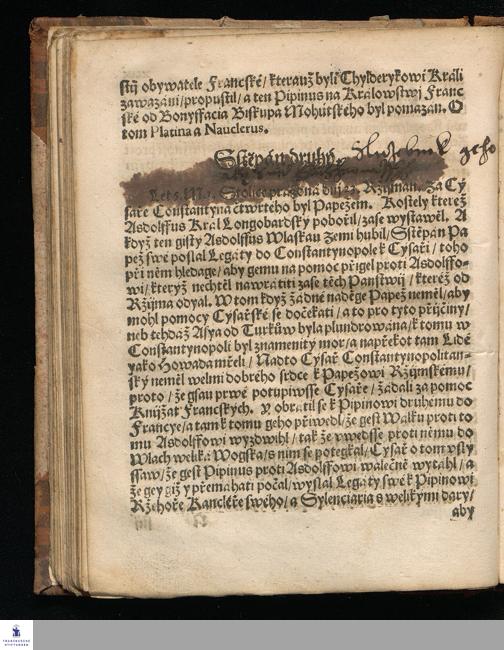 stij obywatele Francské / kterauž byli Chylderykowi Králi
zawázáni / propustil / a ten Pipinus na Králowstwj Franc
ské od Bonyffacia Biskupa Mohutského byl pomazan. O
tom Platina a Nauclerus.
Sstěpán druhý Služebnik geho
Let 5. M. 1. Stolice prázdná dnij Ržijman. Za Cý
saře Constantyna čtwrtého byl Papežem. Kostely kterež
Asdolffus Král Longobardský pobořil / zase wystawěl. A
když ten gistý Asdolffus Wlaskau Zemi hubil / Sstěpán Pa
pež swé poslal Legáty do Constantynopole k Cýsaři / toho
při něm hledage / aby gemu na pomoc přigel proti Asdolffo-
wi / kterýž nechtěl nawrátiti zase těch Panstwij / kteréž od
Ržijma odyal. W tom když žádné naděge Papež neměl / aby
mohl pomocy Cýsařské se dočekati / a to pro tyto přijčiny /
neb tehdáž Asya od Turkůw byla plundrowána / k tomu w
Constantynopoli byl znamenitý mor / a napřekot tam Lidé
yako Howada mřeli / Nadto Cýsař Constantynopolitan-
ský neměl welmi dobrého srdce k Papežowi Ržijmskému /
proto / že gsau prwé potupiwsse Cýsaře / žádali za pomoc
Knijžat Francských. Y obrátil se k Pipinowi druhému do
Francye / a tam k tomu geho přiwedl / že gest Walku proti to
mu Asdolffowi wyzdwihl / tak že wwedsse proti němu do
Wlach weliká Wogska / s nim se potegkal / Cýsař o tom vsly
ssaw / že gest Pipinus proti Asdolffowi walečně wytáhl / a
že gey giž y přemáhati počal / wyslal Legáty swé k Pipinowi
Ržehoře Kancléře swého / a Sylenciaria s welikými dary /
aby
FRANCKESCHE
STIFTUNGEN